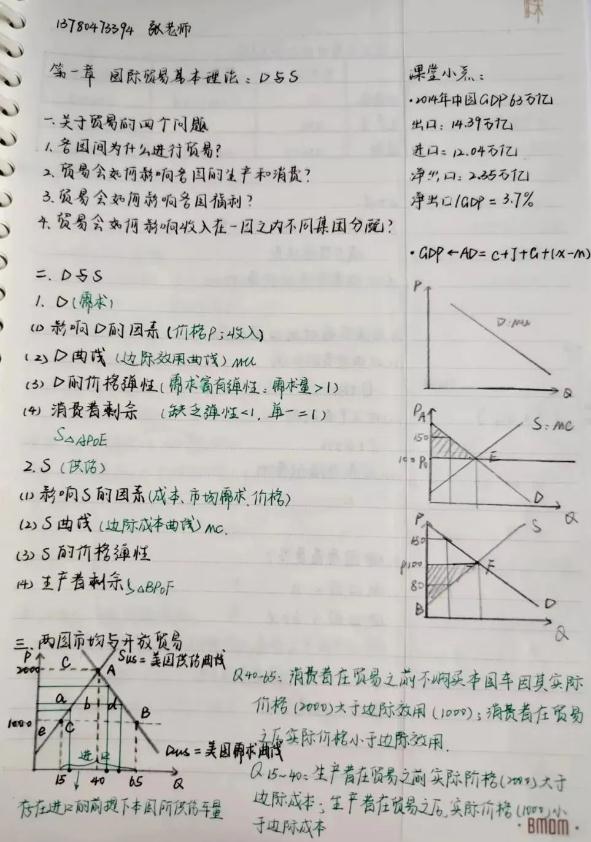 13780473394 张老师
第一章 国际贸易基本理论：D与S
一.关于贸易的四个问题
1.各国间为什么进行贸易？
2.贸易会如何影响各国的生产和消费？
3.贸易会如何影响各国福利？
4.贸易会如何影响收入在一国之内不同集团分配？
二.D与S
1. D(需求)
(1)影响D的因素(价格P；收入)
(2)D曲线(边际效用曲线)MU
(3) D的价格弹性(需求富有弹性：需求量>1)
(4) 消费者剩余 (缺乏弹性<1，单一=1)
S△APoE
2.S (供给)
(1)影响S的因素(成本、市场需求、价格)
(2)S曲线(边际成本曲线)MC.
(3)S的价格弹性
(4)生产者剩余S△BPoF
三.两国市场与开放贸易
P
2000
1000
C
A
Sus=美国供给曲线
a
b
d
e
C
B
进口
Dus=美国需求曲线
15 40 65 Q
存在进口的前提下本国所供给车量
课堂小点：
·2014年中国GDP63万亿
出口：14.39万亿
进口：12.04万亿
净出口：2.35万亿
净出口/GDP=3.7%
·GDP←AD=C+I+G+(X-M)
P
D:MU
Q
PA
150
100 P0
S:MC
E
D
Q
P
150
P100
80
B
S
F
D
Q
Q40-65：消费者在贸易之前不购买本国车因其实际
价格(2000)大于边际效用(1000)；消费者在贸易
之后实际价格小于边际效用.
Q15~40：生产者在贸易之前实际价格(2000)大于
边际成本；生产者在贸易之后,实际价格(1000)小
于边际成本
BMDM